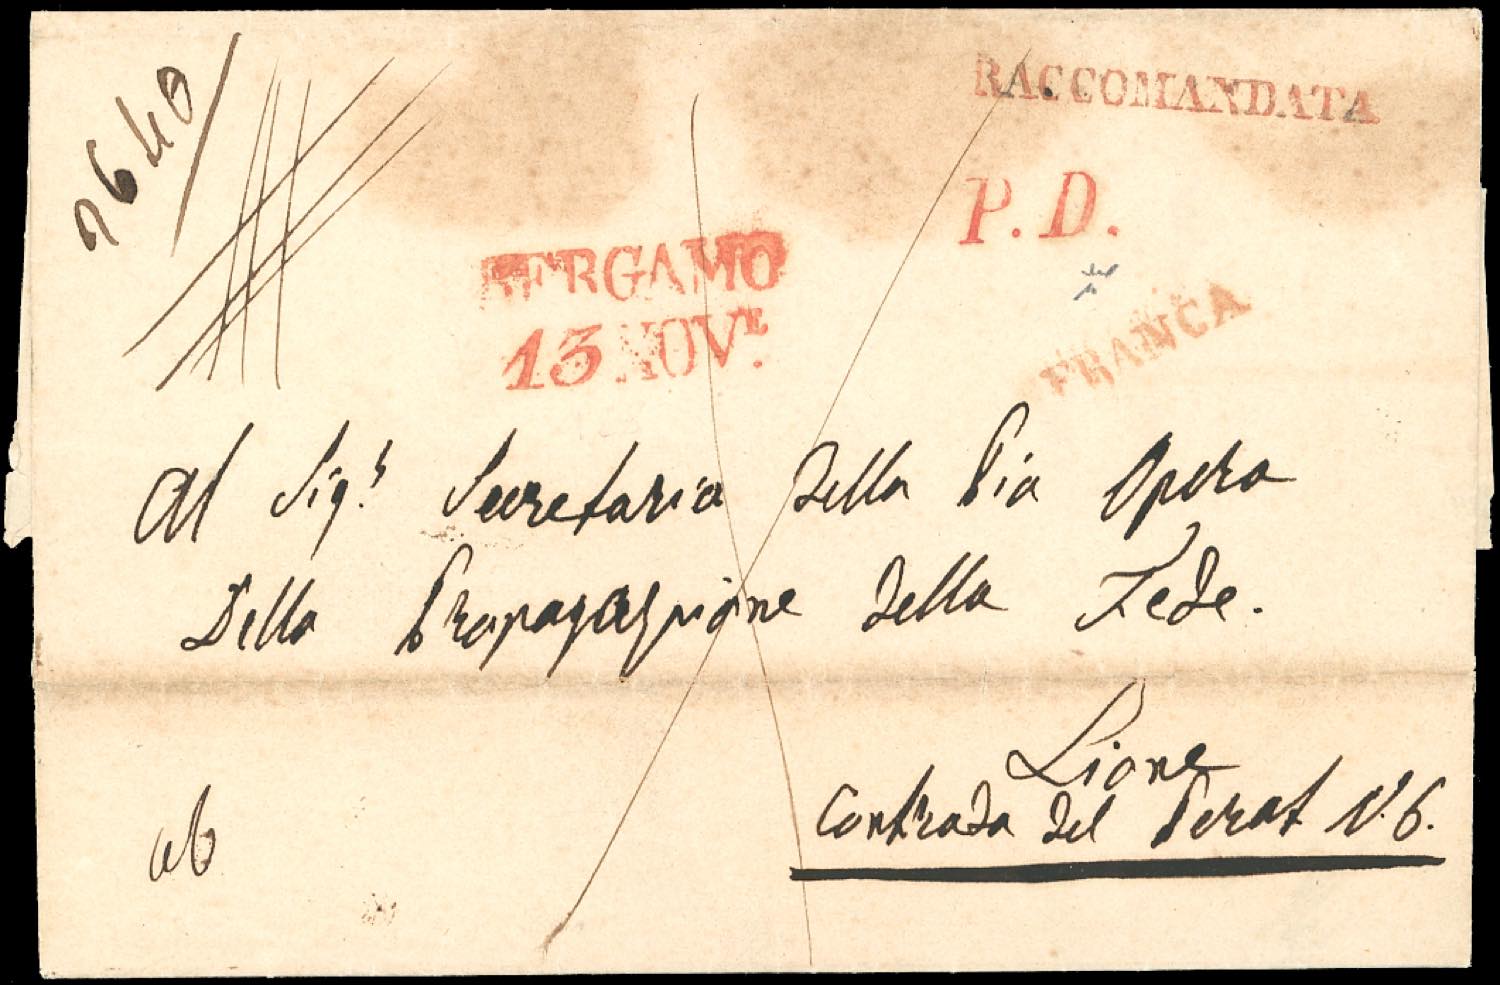 2640
RACCOMANDATA
P. D.
BERGAMO
13 NOVE.
FRANCA
Al Sigr. Secretario della Pia Opera
Della Propagazione della Fede.
Lione
Contrada del Perat N. 6.